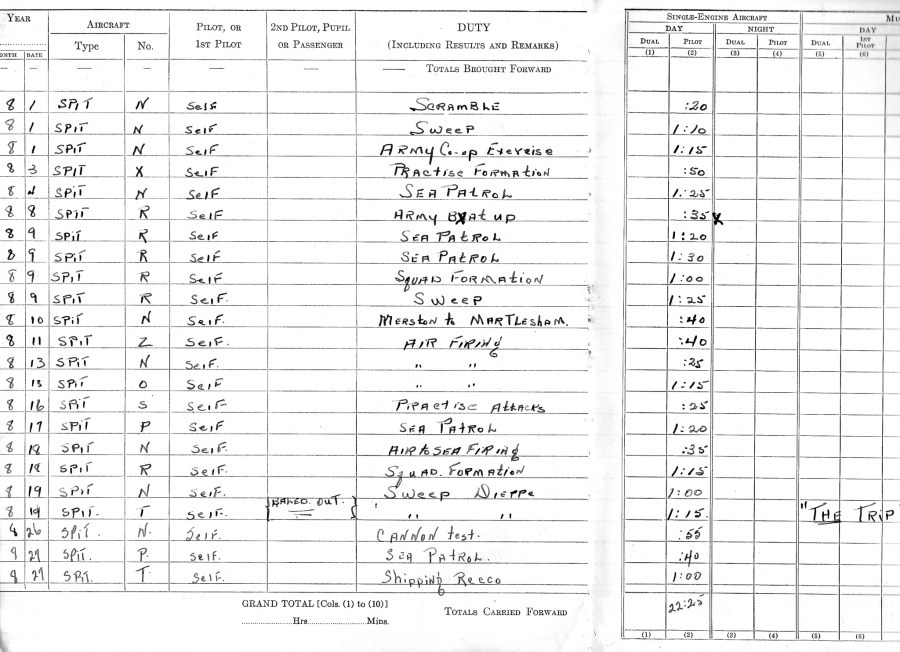 YEAR AIRCRAFT PILOT, OR 2ND PILOT, PUPIL DUTY SINGLE-ENGINE AIRCRAFT
MONTH DATE Type No. 1ST PILOT OR PASSENGER (INCLUDING RESULTS AND REMARKS) DAY NIGHT DAY
DUAL PILOT DUAL PILOT DUAL 1ST PILOT
(1) (2) (3) (4) (5) (6)
— — — — — — —— TOTALS BROUGHT FORWARD
8 1 SPIT N Self SCRAMBLE :20
8 1 SPIT N Self Sweep 1:10
8 1 SPIT N Self ARMY Co-op Exercise 1:15
8 3 SPIT X Self PRActise FORMATION :50
8 4 SPIT N Self SEA PAtROL 1:25
8 8 SPIT R Self ARMY BXAt up :35 X
8 9 SPIT R Self SEA PAtROL 1:20
8 9 SPIT R Self SEA PAtROL 1:30
8 9 SPIT R Self SQUAD FORMATION 1:00
8 9 SPIT R Self. Sweep 1:25
8 10 SPIT N Self. MERSTON to MARTLESHAM. :40
8 11 SPIT Z Self. AIR FIRING :40
8 13 SPIT N Self " " :25
8 13 SPIT O Self " " 1:15
8 16 SPIT S Self PIPRActise AttAcks :25
8 17 SPIT P Self SEA PAtROL 1:20
8 18 SPIT N Self. AIR to SEA FIRING :35
8 18 SPIT R Self. SQUAD. FORMATION 1:15
8 19 SPIT N Self. Sweep DIEPPE 1:00
8 19 SPIT. T Self. {BALED OUT.} " " 1:15. "THE TRIP
8 26 SPIT. N. Self. CANNON test. :55
8 27 SPIT. P. Self. SEA PATROL. :40
8 27 SPIT. T. Self. Shipping Recco 1:00
GRAND TOTAL [Cols. (1) to (10)] TOTALS CARRIED FORWARD 22:25
Hrs. Mins.
(1) (2) (3) (4) (5) (6)